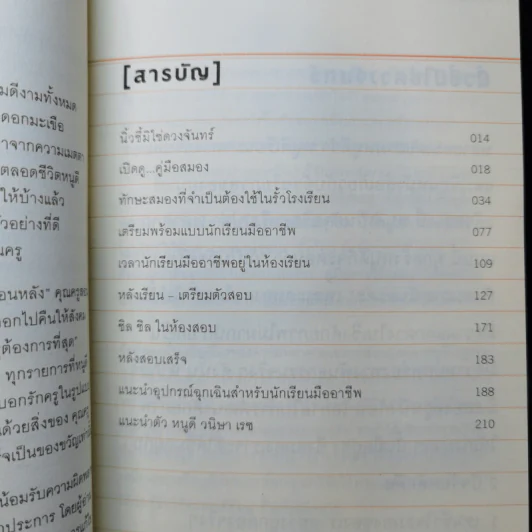 [สารบัญ]
นิ้วชี้มิใช่ดวงจันทร์ 014
เปิดคู...คู่มือสมอง 018
ทักษะสมองที่จำเป็นต้องใช้ในรั้วโรงเรียน 034
เตรียมพร้อมแบบนักเรียนมืออาชีพ 077
เวลานักเรียนมืออาชีพอยู่ในห้องเรียน 109
หลังเรียน – เตรียมตัวสอบ 127
ชิล ชิล ในห้องสอบ 171
หลังสอบเสร็จ 183
แนะนำอุปกรณ์ฉุกเฉินสำหรับนักเรียนมืออาชีพ 188
แนะนำตัว หนูดี วนิษา เรซ 210
มดีงามทั้งหมด
ดอกมะเขือ
าจากความเมตตา
ตลอดชีวิตหนูดี
ให้บ้างแล้ว
ัวอย่างที่ดี
นครู
อนหลัง" คุณครู
อกไปคืนให้สังคม
ต้องการที่สุด"
ทุกรายการที่หนูดี
บอกรักครูในรูปแบบ
ด้วยสิ่งของ คุณครู
จเป็นของขวัญ
น้อมรับความผิดพลาด
ประการ โดย